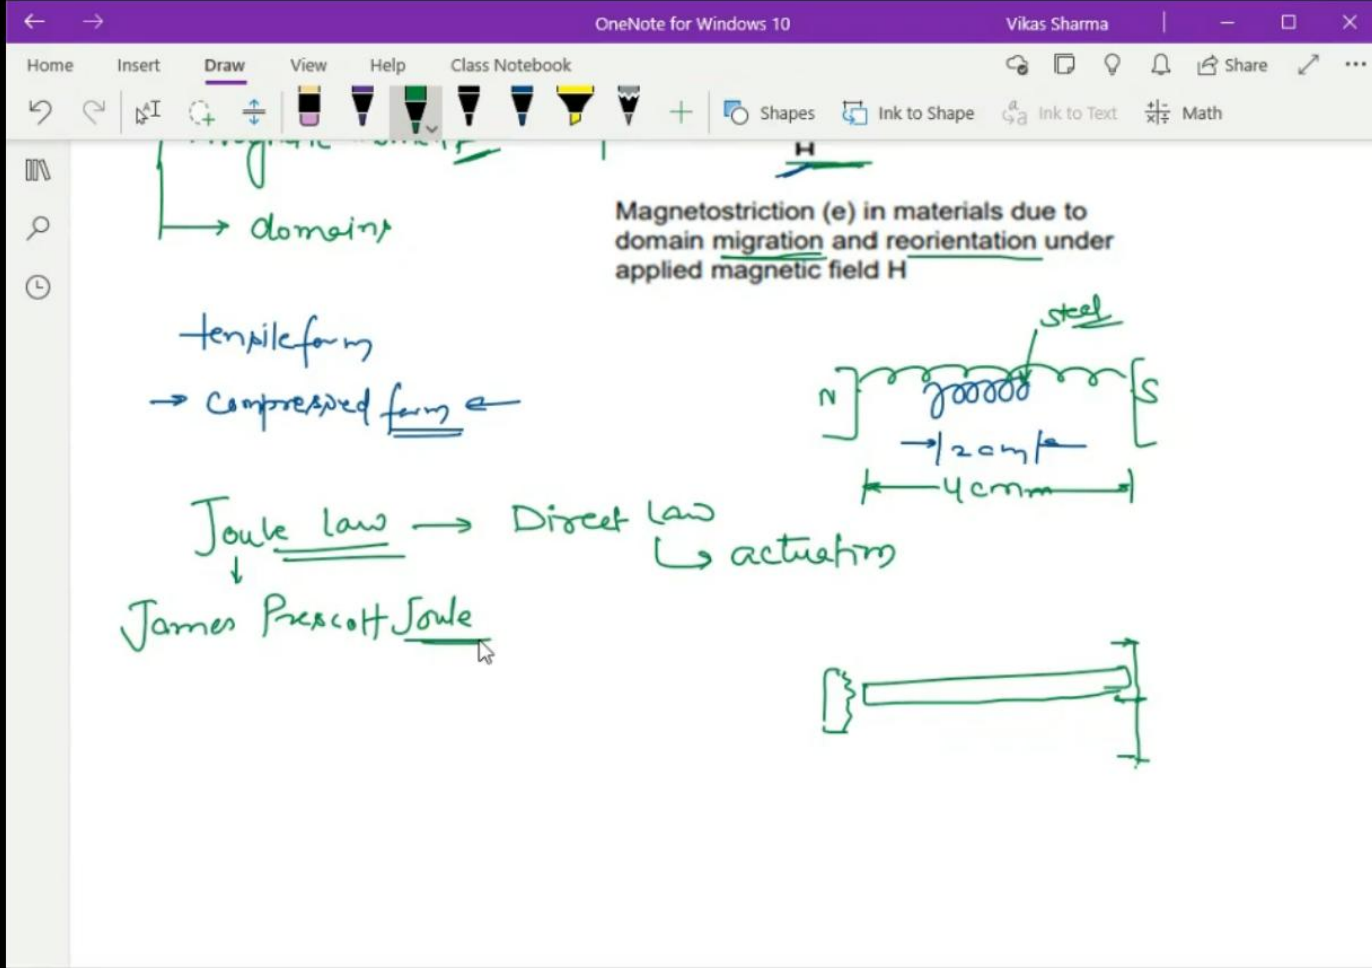 OneNote for Windows 10
Vikas Sharma
Home Insert Draw View Help Class Notebook
Share
Shapes Ink to Shape Ink to Text Math
H
domains
Magnetostriction (e) in materials due to
domain migration and reorientation under
applied magnetic field H
tensile form
→ compressed form ←
steel
N S
2cm
4cm
Joule law → Direct Law
actuation
James Prescott Joule